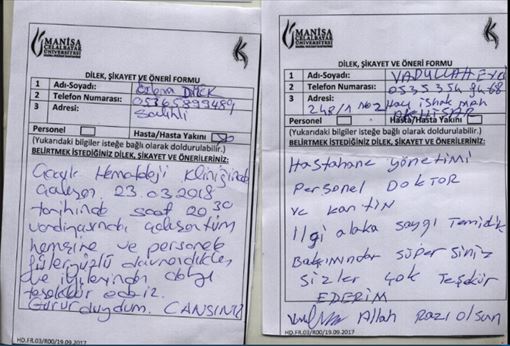 MANİSA
CELAL BAYAR
ÜNİVERSİTESİ
DİLEK, ŞİKAYET VE ÖNERİ FORMU
1 Adı-Soyadı: DİLEK
2 Telefon Numarası: 05365899489
3 Adresi: Salihli
Personel Hasta/Hasta Yakını
(Yukarıdaki bilgiler isteğe bağlı olarak doldurulabilir.)
BELİRTMEK İSTEDİĞİNİZ DİLEK, ŞİKAYET VE ÖNERİLERİNİZ:
Hematoloji Kliniğinde
23.03.2018
tarihinde saat 20 30
tüm
hemşire ve personele
güleryüzlü
ve dolayı
teşekkür ederiz.
Gurur duydum. CANSINIZ
HD.FR.03/R00/19.09.2017
MANİSA
CELAL BAYAR
ÜNİVERSİTESİ
DİLEK, ŞİKAYET VE ÖNERİ FORMU
1 Adı-Soyadı:
2 Telefon Numarası: 0535 354 94 68
3 Adresi: 248/1 no2 Hacı ishak mah
AKHİSAR
Personel Hasta/Hasta Yakını
(Yukarıdaki bilgiler isteğe bağlı olarak doldurulabilir.)
BELİRTMEK İSTEDİĞİNİZ DİLEK, ŞİKAYET VE ÖNERİLERİNİZ:
Hastahane yönetimi
Personel DOKTOR
ve kantin
İlgi alaka saygı Temizlik
Bakımından süper siniz
sizler çok Teşekür
EDERİM
Allah Razı olsun
HD.FR.03/R00/19.09.2017